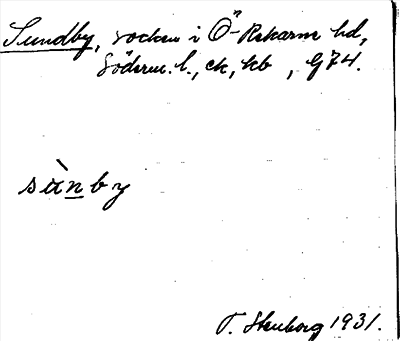 Sundby, socken i Ö-Rekarne hd,
Söderm. l., ek, kb, G74.
sùnby
T. Stenborg 1931.